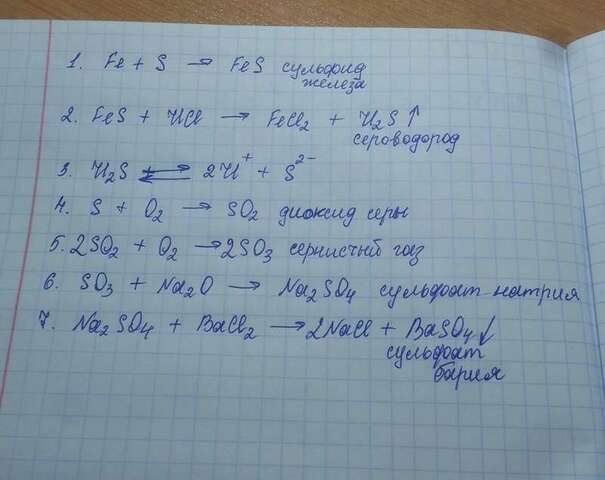 1. Fe + S → FeS сульфид
железа
2. FeS + HCl → FeCl₂ + H₂S ↑
сероводород
3. H₂S ⇄ 2H⁺ + S²⁻
4. S + O₂ → SO₂ диоксид серы
5. 2SO₂ + O₂ → 2SO₃ сернистый газ
6. SO₃ + Na₂O → Na₂SO₄ сульфат натрия
7. Na₂SO₄ + BaCl₂ → 2NaCl + BaSO₄ ↓
сульфат
бария